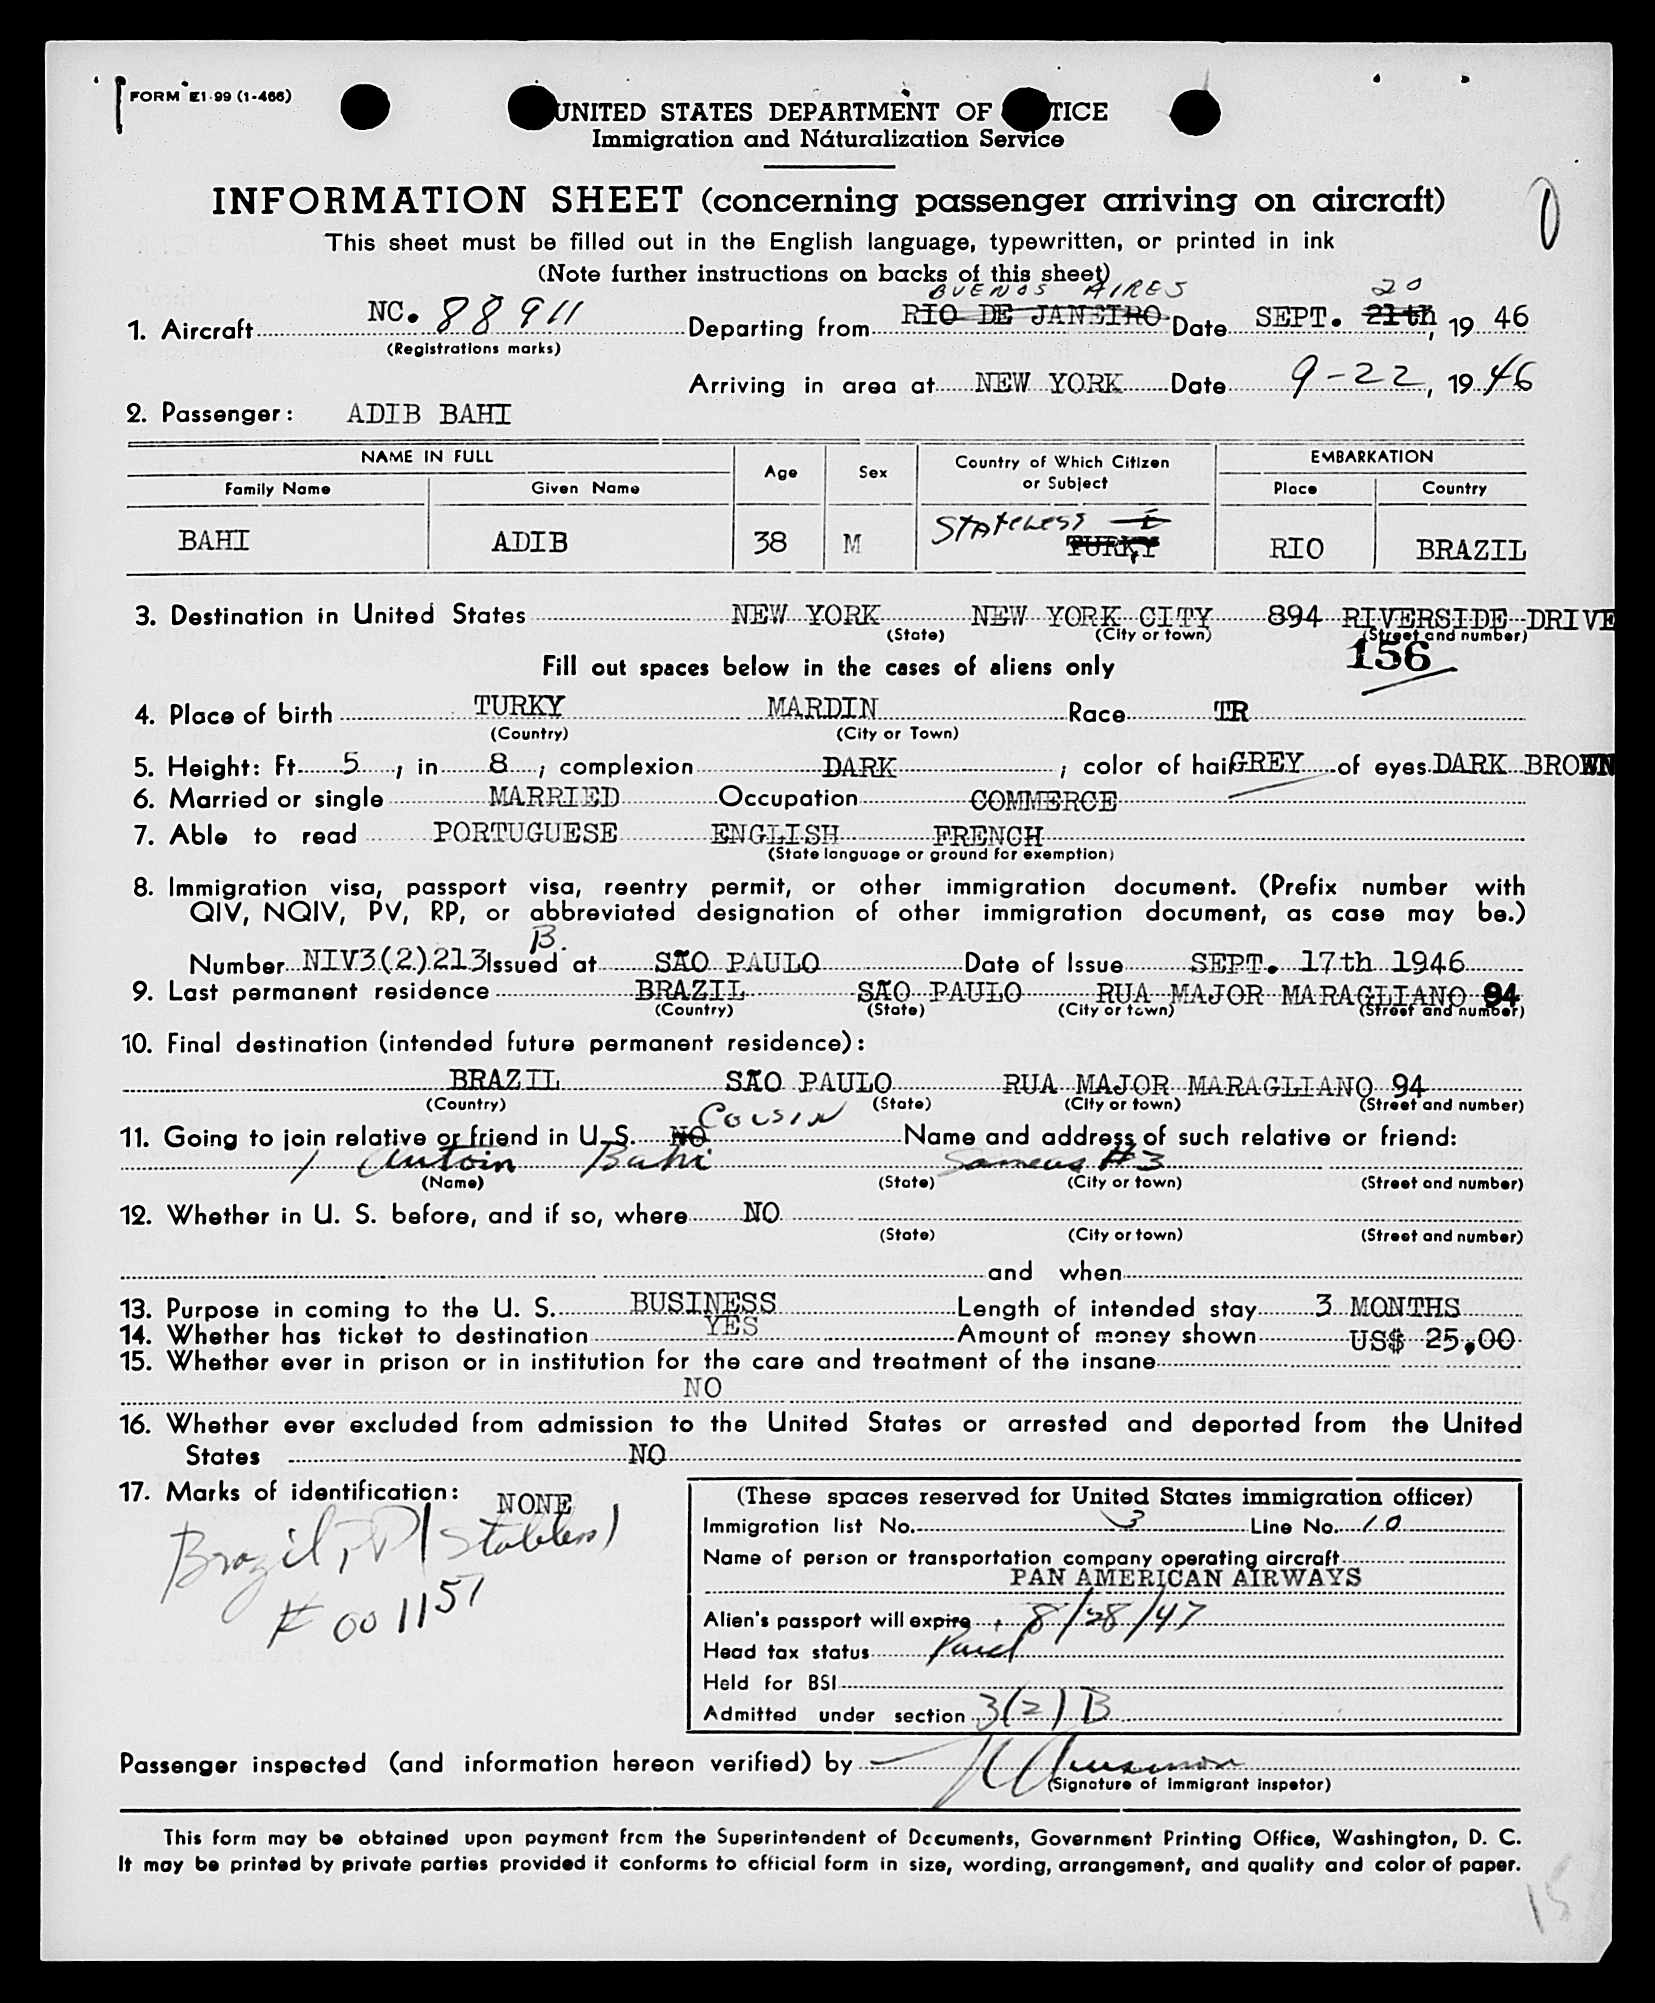 FORM E1-99 (1-466)
UNITED STATES DEPARTMENT OF TICE
Immigration and Naturalization Service
INFORMATION SHEET (concerning passenger arriving on aircraft)
This sheet must be filled out in the English language, typewritten, or printed in ink
(Note further instructions on backs of this sheet)
BUENOS AIRES 20
1. Aircraft NC. 88911 Departing from RIO DE JANEIRO Date SEPT. 21th, 19 46
(Registrations marks)
Arriving in area at NEW YORK Date 9-22, 19 46
2. Passenger: ADIB BAHI
NAME IN FULL Age Sex Country of Which Citizen or Subject EMBARKATION
Family Name Given Name Place Country
BAHI ADIB 38 M Stateless TURKY RIO BRAZIL
3. Destination in United States NEW YORK NEW YORK CITY 894 RIVERSIDE DRIVE
(State) (City or town) (Street and number)
Fill out spaces below in the cases of aliens only 156
4. Place of birth TURKY MARDIN Race TR
(Country) (City or Town)
5. Height: Ft. 5, in 8; complexion DARK; color of hair GREY of eyes DARK BROWN
6. Married or single MARRIED Occupation COMMERCE
7. Able to read PORTUGUESE ENGLISH FRENCH
(State language or ground for exemption)
8. Immigration visa, passport visa, reentry permit, or other immigration document. (Prefix number with
QIV, NQIV, PV, RP, or abbreviated designation of other immigration document, as case may be.)
B.
Number NIV3(2)213 Issued at SÃO PAULO Date of Issue SEPT. 17th 1946
9. Last permanent residence BRAZIL SÃO PAULO RUA MAJOR MARAGLIANO 94
(Country) (State) (City or town) (Street and number)
10. Final destination (intended future permanent residence):
BRAZIL SÃO PAULO RUA MAJOR MARAGLIANO 94
(Country) (State) (City or town) (Street and number)
Cousin
11. Going to join relative or friend in U. S. NO Name and address of such relative or friend:
Antoin Bahi Same as #3
(Name) (State) (City or town) (Street and number)
12. Whether in U. S. before, and if so, where NO
(State) (City or town) (Street and number)
and when
13. Purpose in coming to the U. S. BUSINESS Length of intended stay 3 MONTHS
14. Whether has ticket to destination YES Amount of money shown US$ 25,00
15. Whether ever in prison or in institution for the care and treatment of the insane
NO
16. Whether ever excluded from admission to the United States or arrested and deported from the United
States NO
17. Marks of identification: NONE
Brazil, PP (Stateless)
# 001157
(These spaces reserved for United States immigration officer)
Immigration list No. 3 Line No. 10
Name of person or transportation company operating aircraft
PAN AMERICAN AIRWAYS
Alien's passport will expire 8/28/47
Head tax status Paid
Held for BSI
Admitted under section 3(2)B
Passenger inspected (and information hereon verified) by
(Signature of immigrant inspetor)
This form may be obtained upon payment from the Superintendent of Documents, Government Printing Office, Washington, D. C.
It may be printed by private parties provided it conforms to official form in size, wording, arrangement, and quality and color of paper.
15